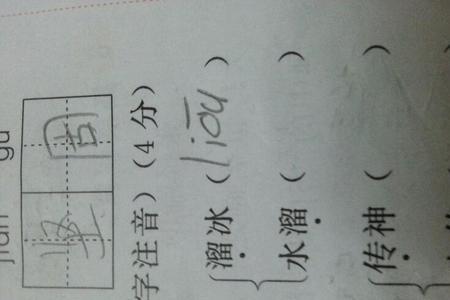 jian gu
坚固
字注音)(4分)
溜冰(liōu)
水溜( )
传神( )